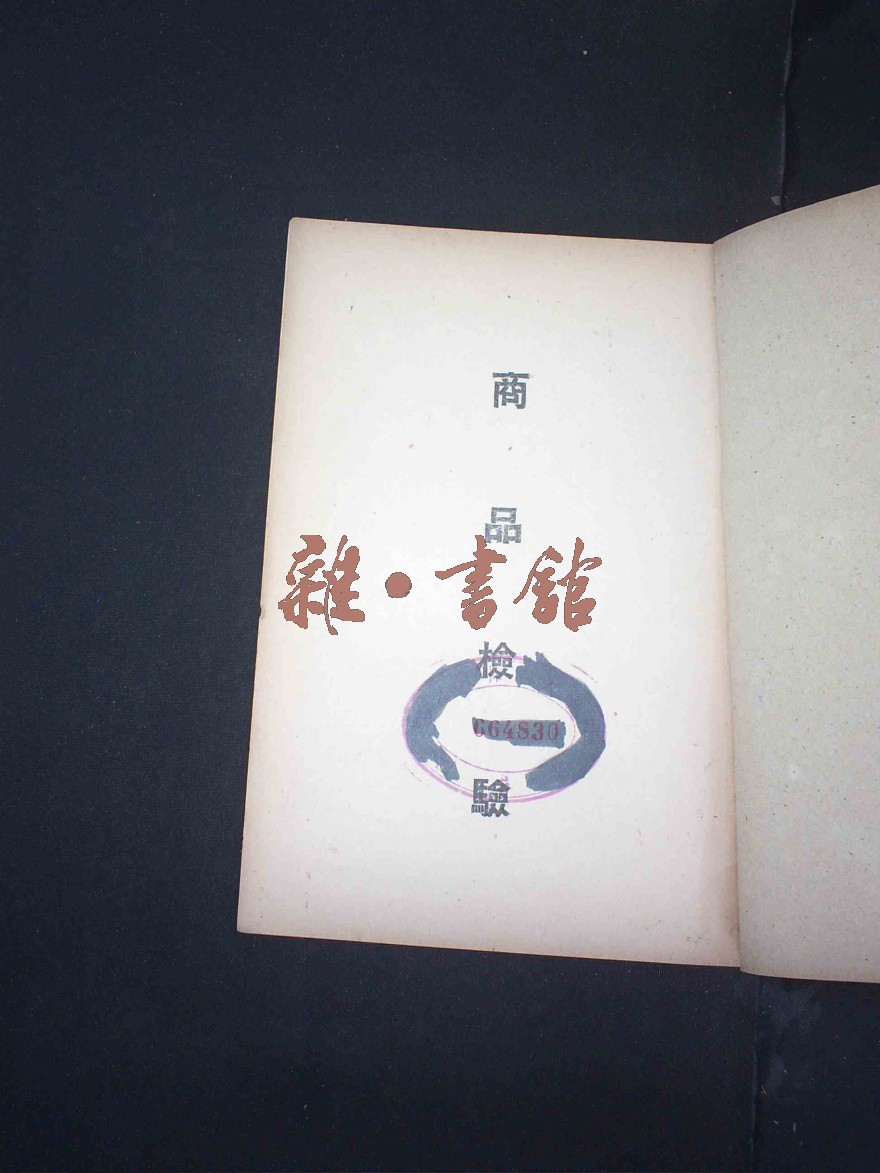 商品檢驗
雜·書館
664830